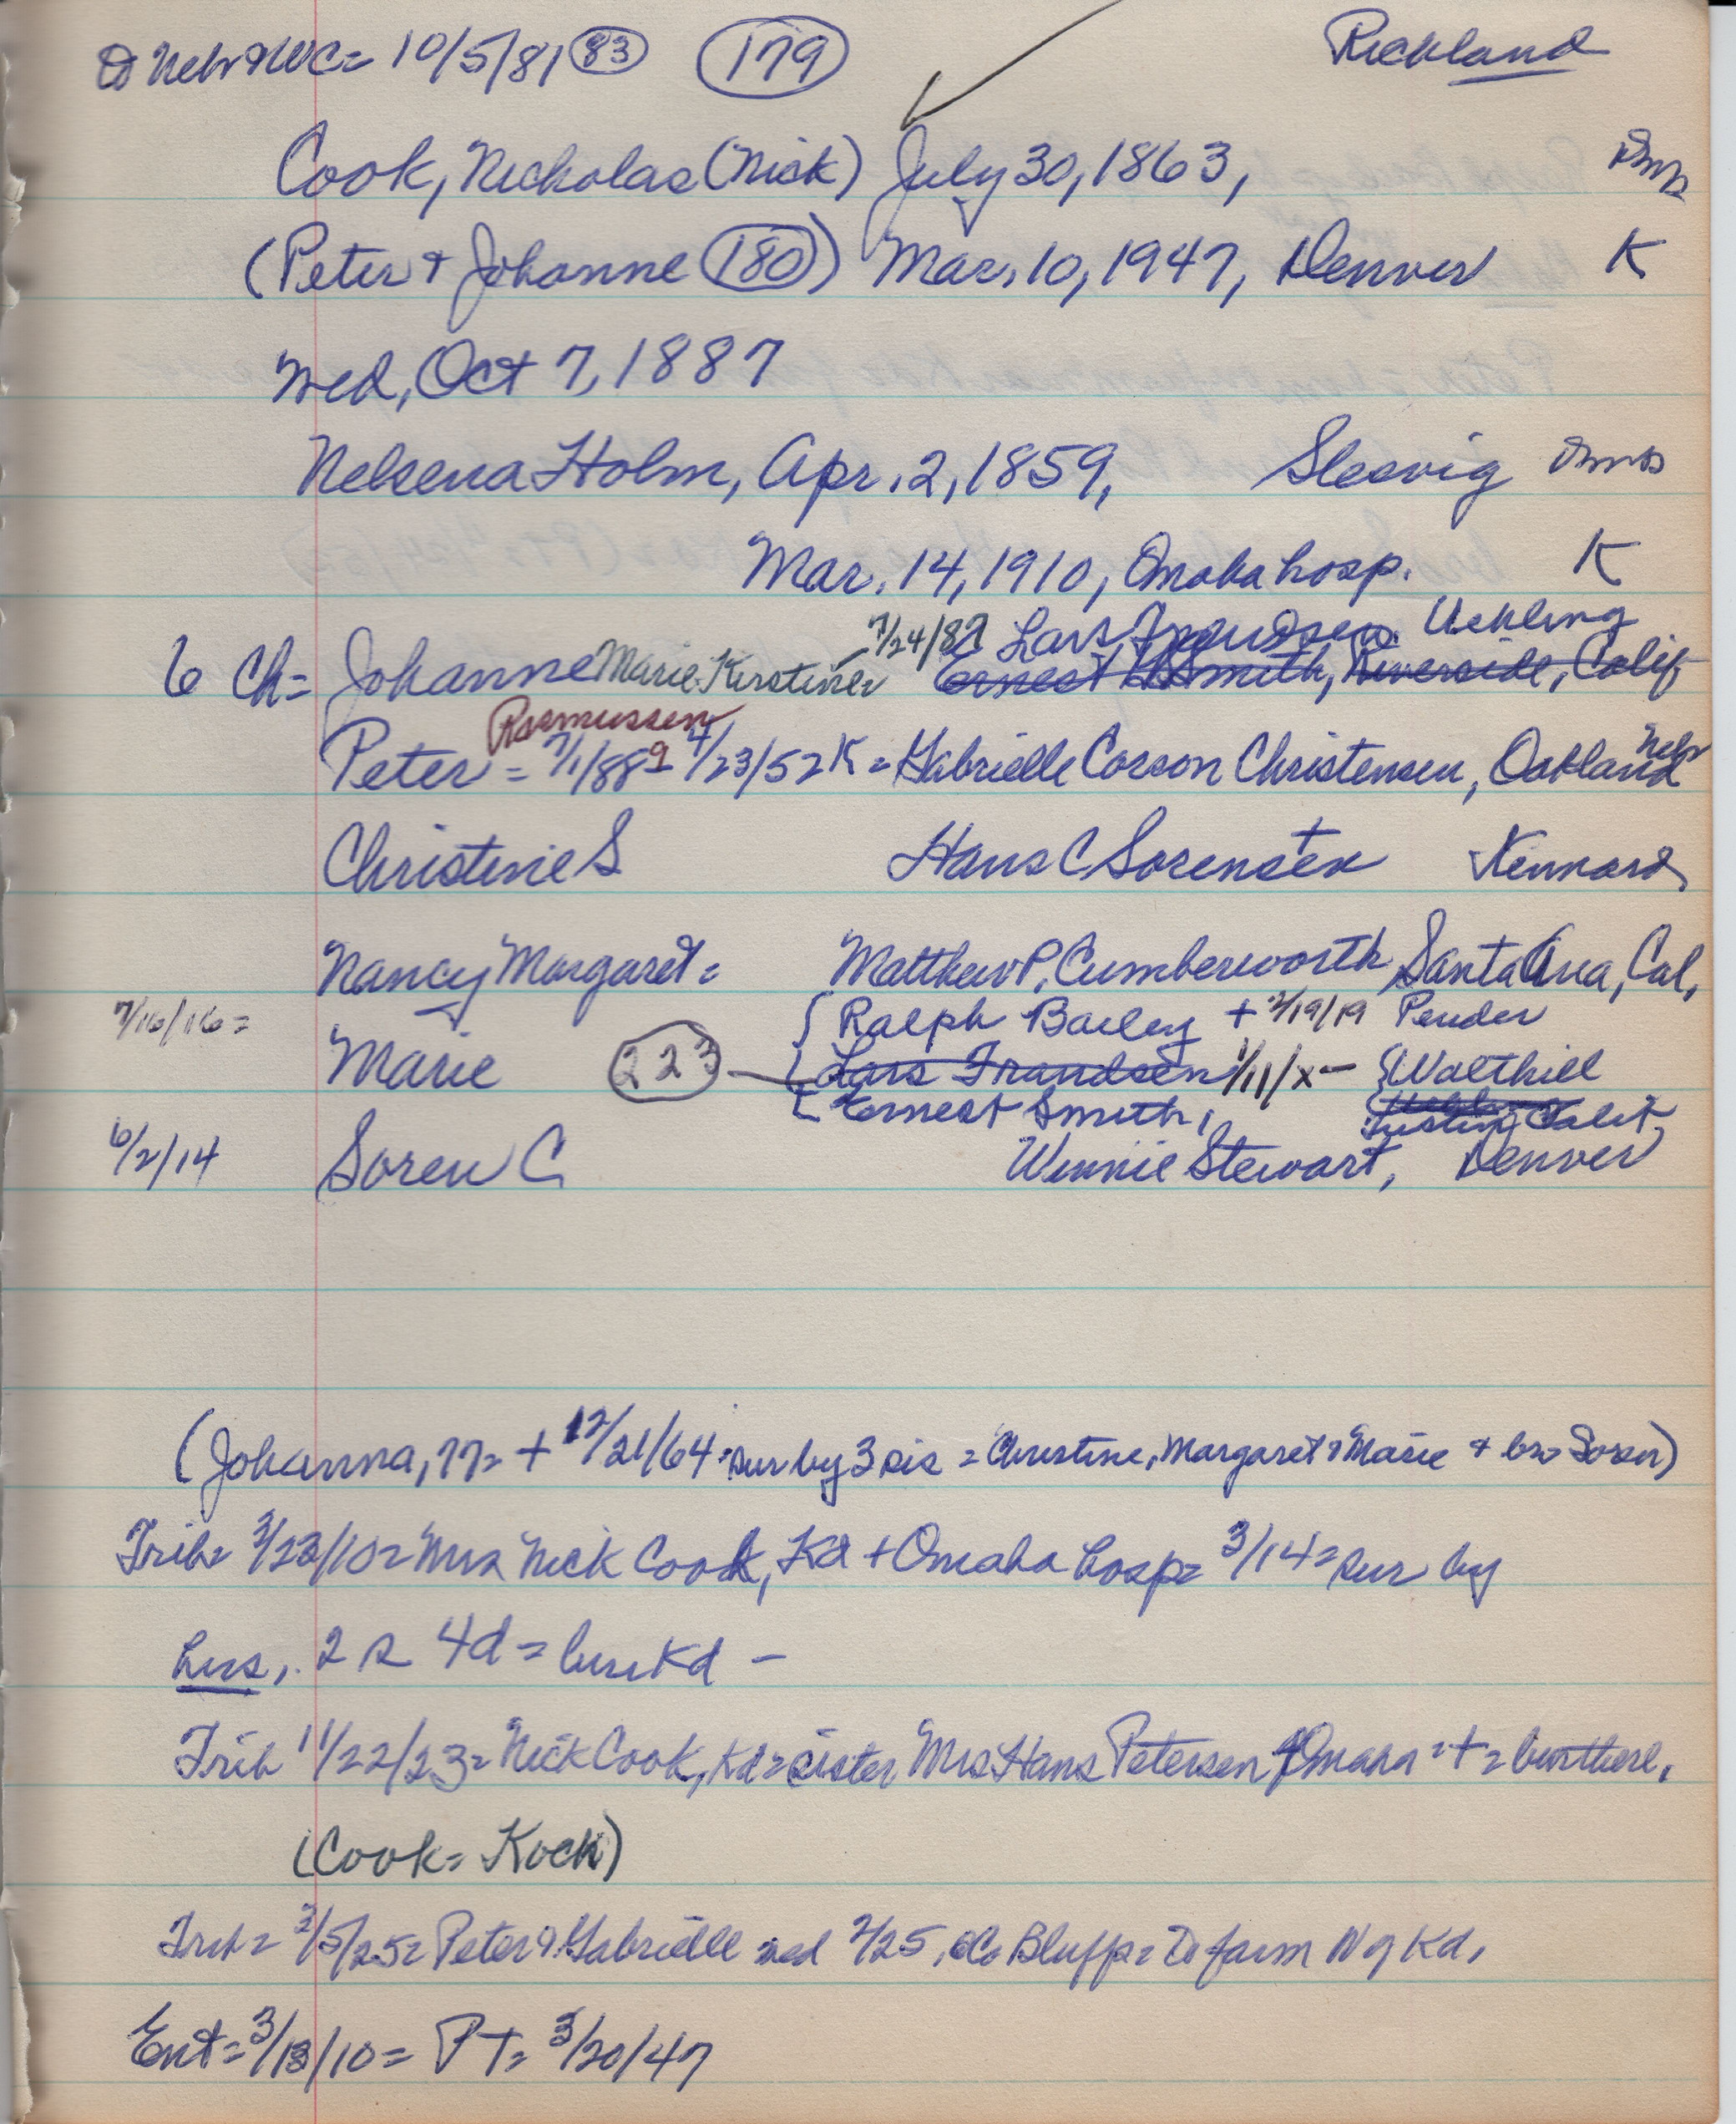 to Nebr & WC= 10/5/81 (83) (179) Richland
Cook, Nicholas (Nick) July 30, 1863, Dmk
(Peter + Johanne (180)) Mar. 10, 1947, Denver K
Wed, Oct 7, 1887
Nelsena Holm, Apr. 2, 1859, Slesvig Dmk
Mar. 14, 1910, Omaha hosp. K
7/24/87 Lars Frandsen Uehling
6 Ch= Johanne Marie Kirstine= Ernest Smith, Riverside, Calif
Rasmussen Nebr
Peter = 7/1/889 - 4/23/52 K = Gabrielle Corson Christensen, Oakland
Christine S Hans C Sorensen Kennard
Nancy Margaret = Matthew P. Cumberworth Santa Ana, Cal.
7/16/16= { Ralph Bailey + 2/19/19 Pender
Marie (223) — { Lars Frandsen 1/11/x — { Walthill
Ernest Smith, Tustin, Calif.
6/2/14 Soren C Winnie Stewart, Denver
(Johanna, 77= + 12/21/64 = sur by 3 sis = Christine, Margaret & Marie + bro Soren)
Trib= 3/23/10= Mrs Nick Cook, Kd + Omaha hosp= 3/14= sur by
hus, 2 s 4d = bur Kd -
Trib 11/22/23= Nick Cook, Kd= sister Mrs Hans Petersen of Omaha = + = bur there.
(Cook= Kock)
Trib= 3/5/25= Peter & Gabrielle wed 2/25, Co Bluffs= to farm N of Kd.
Ent= 3/18/10= PT= 3/20/47